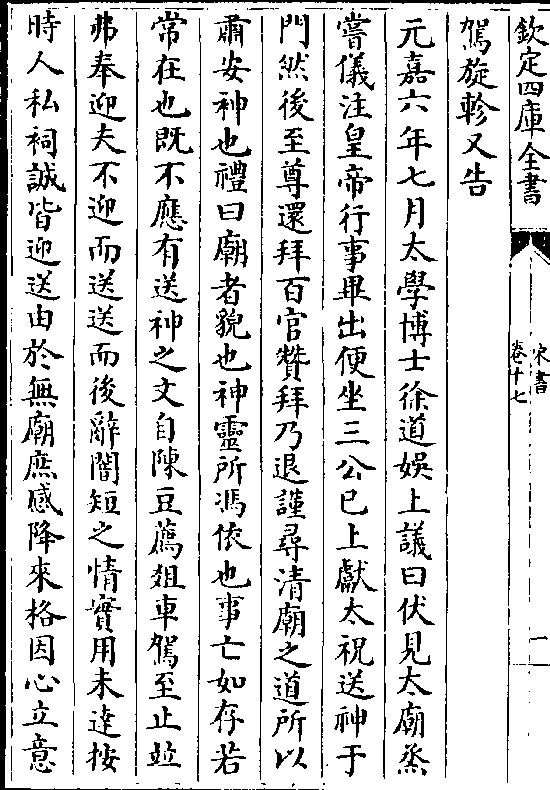 欽定四庫全書
宋書
卷十七
一
駕旋軫又告
元嘉六年七月太學博士徐道娛上議曰伏見太廟烝
嘗儀注皇帝行事畢出便坐三公已上獻太祝送神于
門然後至尊還拜百官贊拜乃退謹尋清廟之道所以
肅安神也禮曰廟者貌也神靈所馮依也事亡如存若
常在也既不應有送神之文自陳豆薦俎車駕至止並
弗奉迎夫不迎而送送而後辭闇短之情實用未達按
時人私祠誠皆迎送由於無廟庶感降來格因心立意